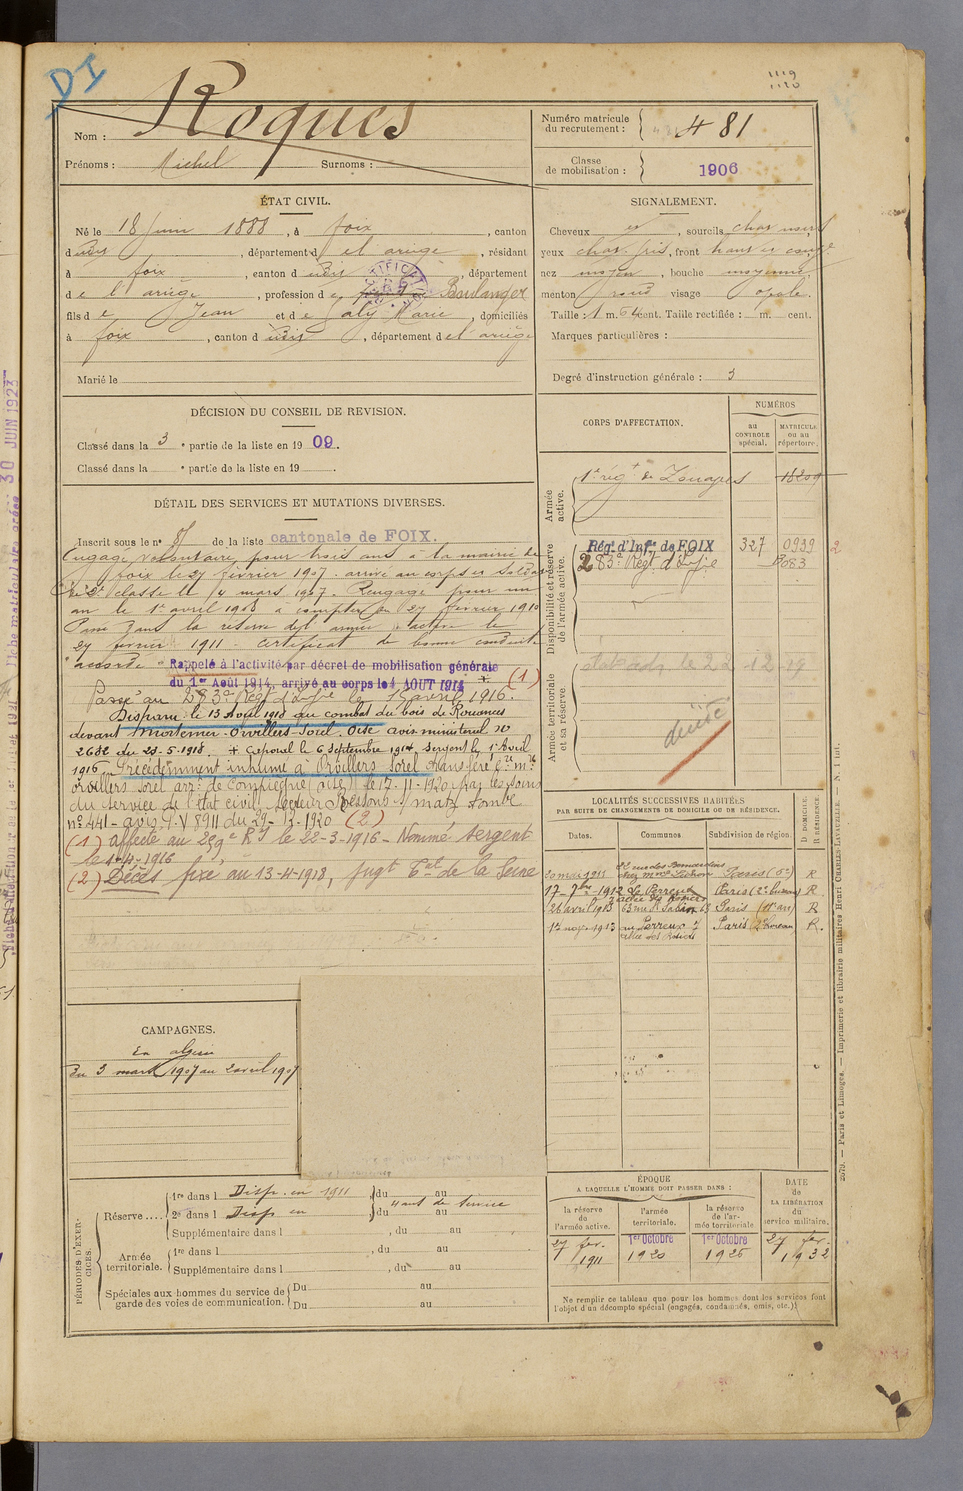 DI
1119
1120
Nom : Roques
Prénoms : Michel Surnoms :
Numéro matricule du recrutement : 481
Classe de mobilisation : 1906
ÉTAT CIVIL.
Né le 18 juin 1888, à foix, canton
dudit, département de l'ariège, résidant
à foix, canton dudit, département
de l'ariège, profession de Boulanger
fils de Jean et de Marie, domiciliés
à foix, canton dudit, département de l'ariège
Marié le
SIGNALEMENT.
Cheveux, sourcils chat noirs
yeux chat. gris, front haut et
nez moyen, bouche moyenne,
menton rond visage
Taille : 1 m. 64 cent. Taille rectifiée : m. cent.
Marques particulières :
Degré d'instruction générale : 3
DÉCISION DU CONSEIL DE REVISION.
Classé dans la 3e partie de la liste en 1909.
Classé dans la e partie de la liste en 19
DÉTAIL DES SERVICES ET MUTATIONS DIVERSES.
Inscrit sous le n° de la liste cantonale de FOIX.
Engagé volontaire pour trois ans à la mairie de
foix le 27 février 1907. arrivé au corps et soldat
de 2e classe le 4 mars 1907. Rengagé pour un
an le 1er avril 1908 à compter du 27 février 1910
Passé dans la réserve de l'armée active le
27 février 1911. certificat de bonne conduite
"accordé" Rappelé à l'activité par décret de mobilisation générale
du 1er Août 1914, arrivé au corps le 4 AOUT 1914 + (1)
Passé au 283e Régt d'Infie le 15 avril 1916.
Disparu le 13 Avril 1918 au combat du bois de
devant Mortemer-Orvillers-Sorel. Oise avis ministériel n°
2682 du 23-5-1918. + Caporal le 6 Septembre 1914, Sergent le 1er Avril
1916 Précédemment inhumé à Orvillers Sorel transféré
orvillers Sorel arrt de Compiègne (oise) le 17-11-1920 par les soins
du service de l'état civil, secteur Ressons s/ matz tombe
n° 441 - avis 8911 du 29-12-1920 (2)
(1) affecté au 289e RI le 22-3-1916 - Nommé sergent
le 1-4-1916
(2) Décès fixé au 13-4-1918, jugt de la Seine
CORPS D'AFFECTATION.
NUMÉROS
au CONTROLE spécial.
MATRICULE ou au répertoire.
Armée active.
1er régt de Zouaves 18209
Disponibilité et réserve de l'armée active.
Régt d'Infie de FOIX 327 0939 2
283e Régt d'Infie 8083
Armée territoriale et sa réserve.
22-12-19
LOCALITÉS SUCCESSIVES HABITÉES
PAR SUITE DE CHANGEMENTS DE DOMICILE OU DE RÉSIDENCE.
Dates. Communes. Subdivision de région. D DOMICILE. R RÉSIDENCE
20 mai 1911 chez Mme Paris (5e) R
17-7bre-1912 Le Perreux Paris (2e bureau) R
26 avril 1913 63 rue St Sabin 63 Paris (11e arr) R
1er nov. 1913 au Perreux 7 allée des Rosiers Paris (2e bureau R.
CAMPAGNES.
En algérie
Du 3 mars 1907 au 2 avril 1907
PÉRIODES D'EXERCICES.
Réserve.... 1re dans l Disp. en 1911 du au
2e dans l Disp en du au
4 ans de service
Supplémentaire dans l , du au
Armée territoriale. 1re dans l , du au
Supplémentaire dans l , du au
Spéciales aux hommes du service de garde des voies de communication. Du au
Du au
ÉPOQUE
A LAQUELLE L'HOMME DOIT PASSER DANS :
la réserve de l'armée active.
l'armée territoriale.
la réserve de l'armée territoriale
DATE de LA LIBÉRATION du service militaire.
27 fév. 1911
1er Octobre 1920
1er Octobre 1926
27 fév. 1932
Ne remplir ce tableau que pour les hommes dont les services font
l'objet d'un décompte spécial (engagés, condamnés, omis, etc.).
2679. — Paris et Limoges. — Imprimerie et librairie militaires Henri CHARLES-LAVAUZELLE. — N. 1 int.
30 JUIN 1923